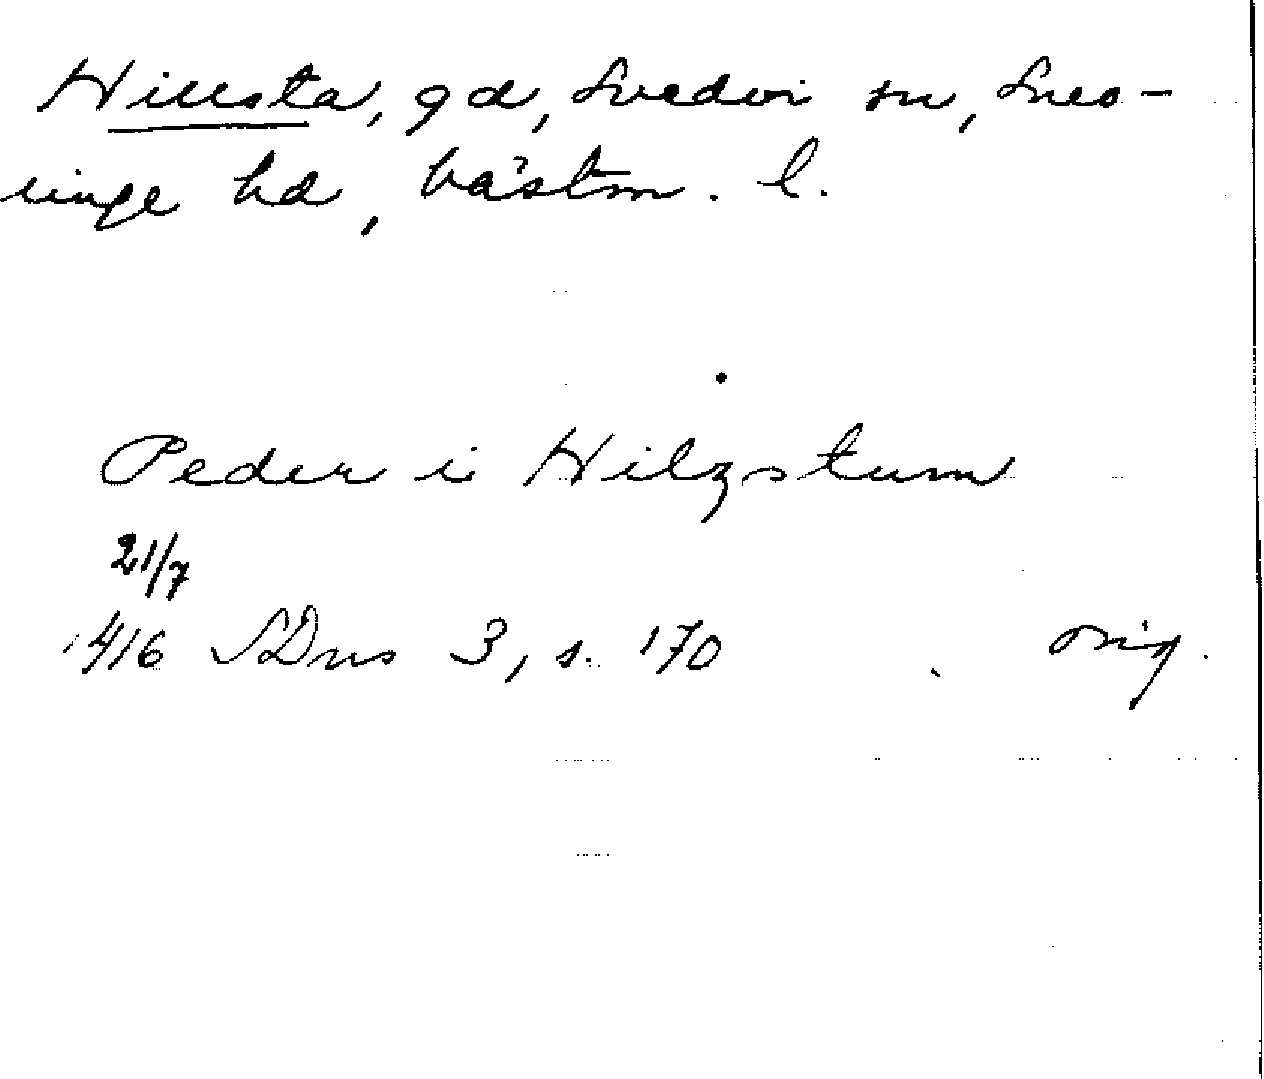 Hillsta, gd, Svedvi sn, Snev-
ringe hd, Västm. l.
Peder i Hilzstum
21/7
1416 SDns 3, s. 170 orig.